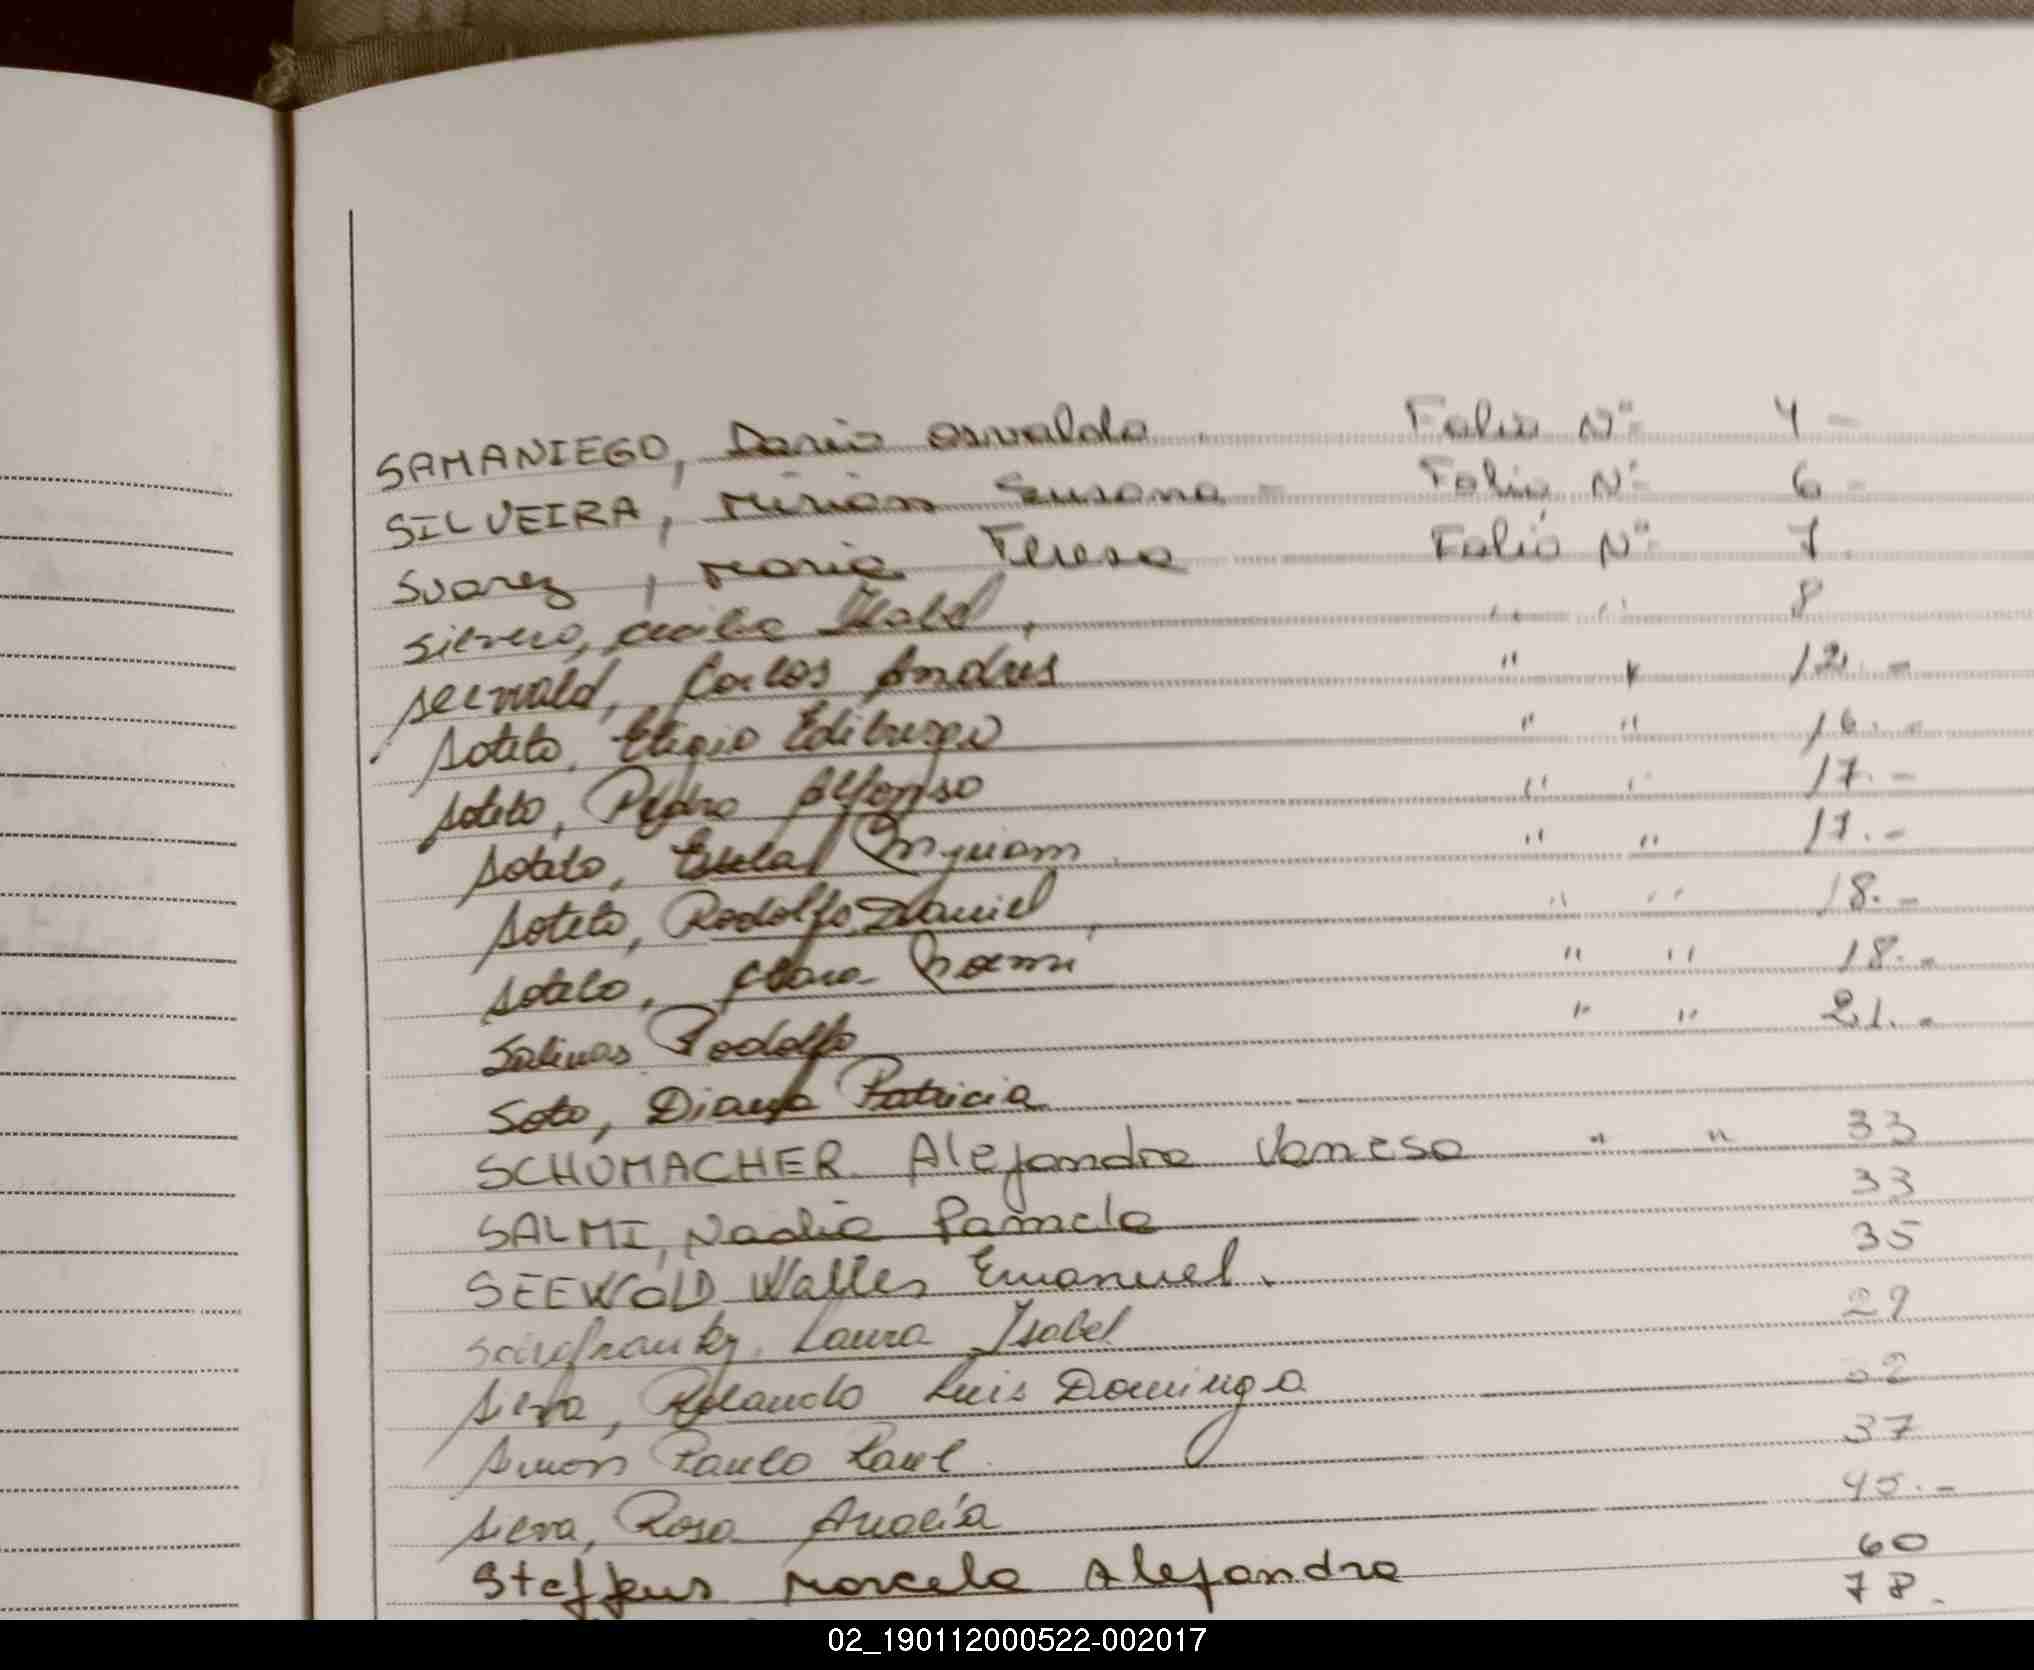 SAMANIEGO, Dario Osvaldo Folio Nº 4 -
SILVEIRA, Mirian Susana - Folio Nº 6 -
Suarez, Maria Teresa Folio Nº 7
Silvero, Cecilia Isabel, " " 8
Seewald, Carlos Andrés " " 12. -
Sotelo, Eligio Edilburgo " " 16. -
Sotelo, Pedro Alfonso " " 17. -
Sotelo, Estela Myriam " " 17. -
Sotelo, Rodolfo Daniel, " " 18. -
Sotelo, Clara Noemi " " 18. -
Salinas Rodolfo " " 21. -
Soto, Diana Patricia
SCHUMACHER Alejandra Vanesa " " 33
SALMI, Nadia Pamela 33
SEEWOLD Walter Emanuel. 35
Laura Isabel 29
Silva, Rolando Luis Domingo 32
Simon Paulo Raul 37
Silva, Rosa Analía 45. -
Steffens Marcela Alejandra 60
78.
02_190112000522-002017